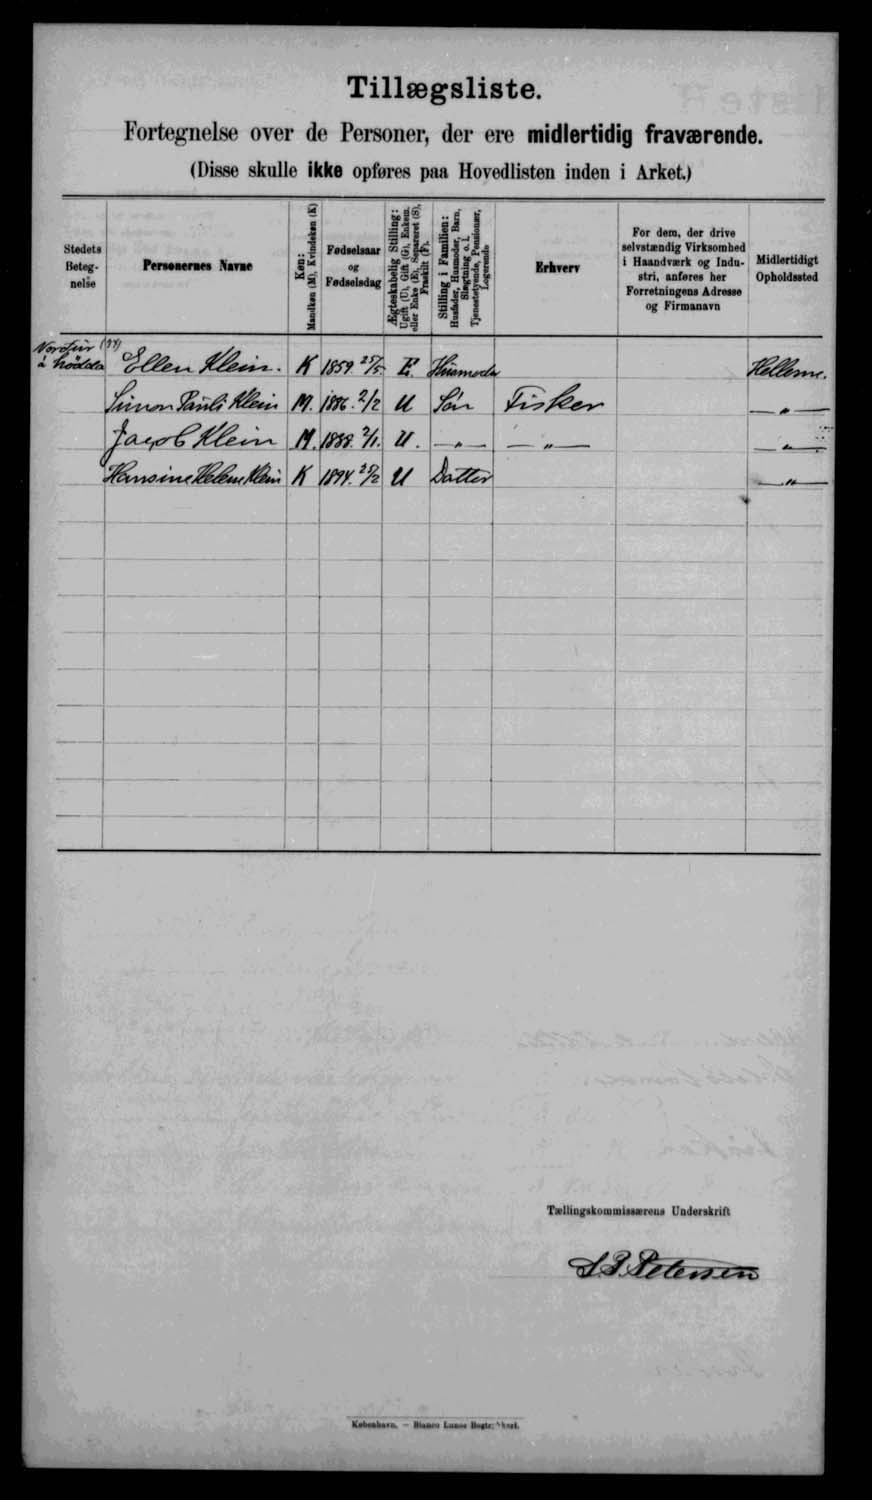 Tillægsliste.
Fortegnelse over de Personer, der ere midlertidig fraværende.
(Disse skulle ikke opføres paa Hovedlisten inden i Arket.)
Stedets Beteg- nelse
Personernes Navne
Køn: Mandkøn (M), Kvindekøn (K)
Fødselsaar og Fødselsdag
Ægteskabelig Stilling: Ugift (U), Gift (G), Enkem. eller Enke (E), Separeret (S), Fraskilt (F).
Stilling i Familien: Husfader, Husmoder, Barn, Slægtning o. l. Tjenestetyende, Pensionær, Logerende
Erhverv
For dem, der drive selvstændig Virksomhed i Haandværk og Indu- stri, anføres her Forretningens Adresse og Firmanavn
Midlertidigt Opholdssted
á hødda Ellen Klein. K 1859 25/5. E. Husmoder
Simon Pauli Klein M. 1886. 2/2 U Søn Fisker — „ —
Jacob Klein M. 1888. 2/1. U. — „ — — „ — — „ —
Hansine Helene Klein K 1894. 25/2 U Datter — „ —
Tællingskommissærens Underskrift
Petersen
København. — Bianco Lunos Bogtr.